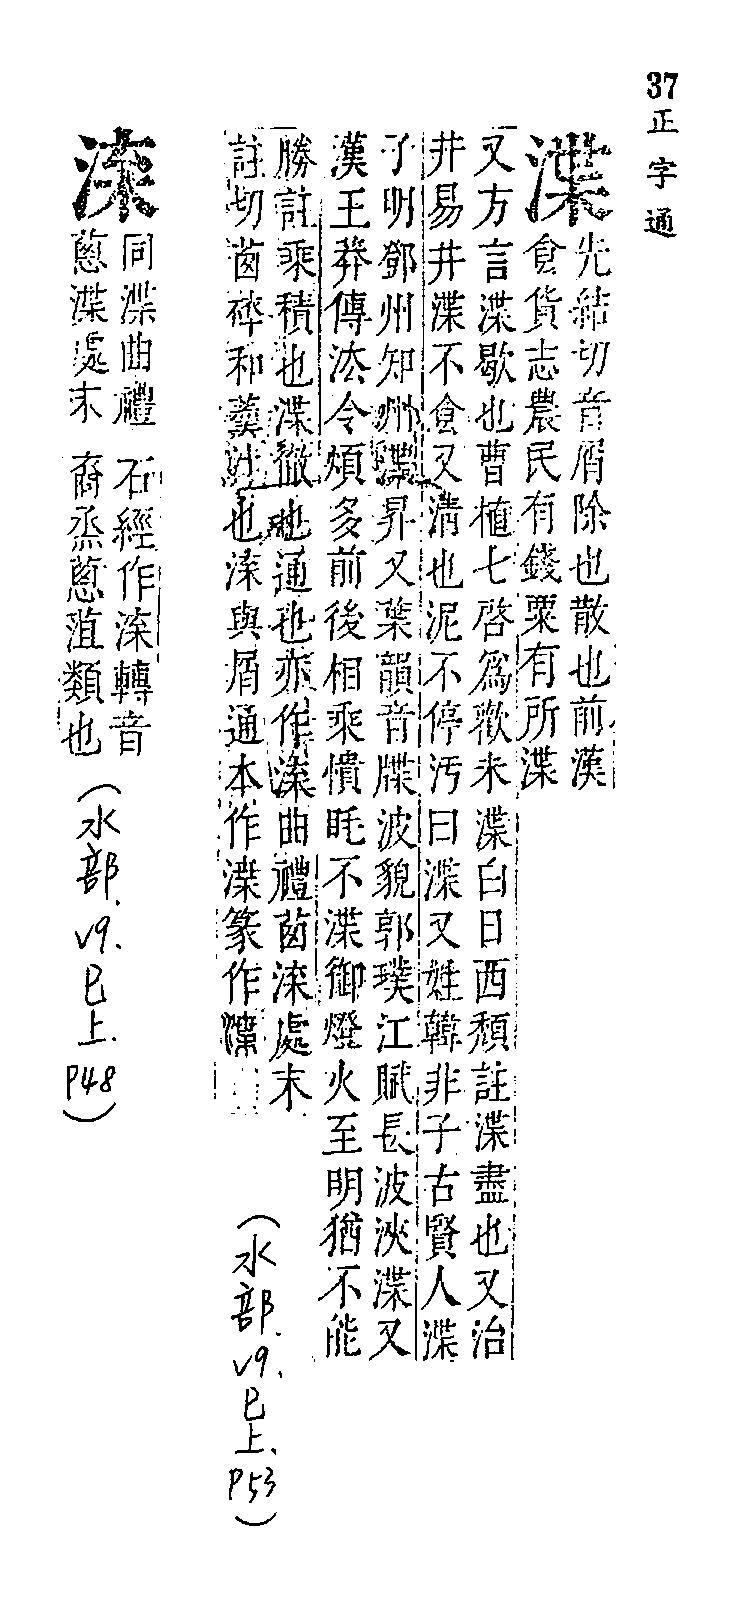 37
正字通
渫
先結切音屑除也散也前漢
食貨志農民有錢粟有所渫
又方言渫歇也曹植七啓為歡未渫白日西頹註渫盡也又治
井易井渫不食又淸也泥不停汚曰渫又姓韓非子古賢人渫
子明鄧州知州渫昇又葉韻音牒波貌郭璞江賦長波浹渫又
漢王莽傳法令煩多前後相乘憒眊不渫御燈火至明猶不能
勝註乘積也渫徹也通也亦作㳿曲禮䓤㳿處末
註切䓤和羹也㳿與屑通本作渫篆作
㳿
同渫曲禮
䓤渫處末
石經作㳿轉音
裔烝䓤葅類也
(水部.v9.巳上.P53)
(水部.v9.巳上.P48)